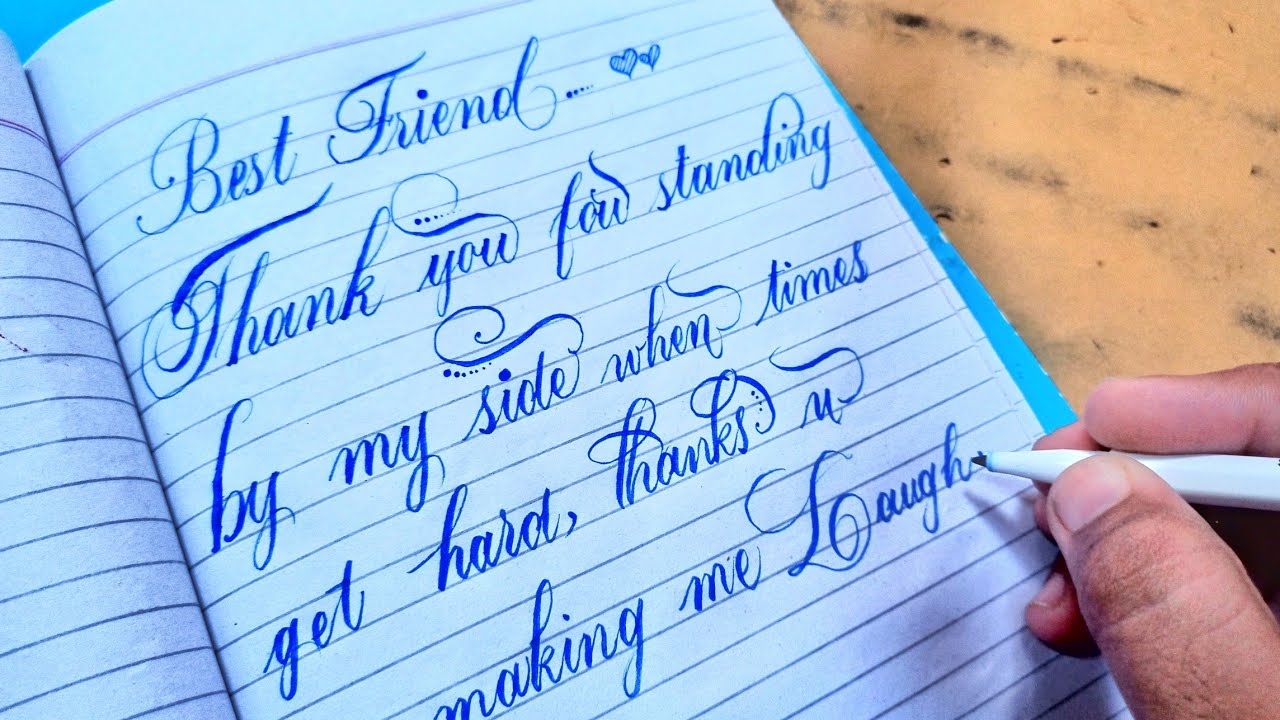 Best Friend....
Thank you for standing
by my side when times
get hard, thanks u
making me Laugh